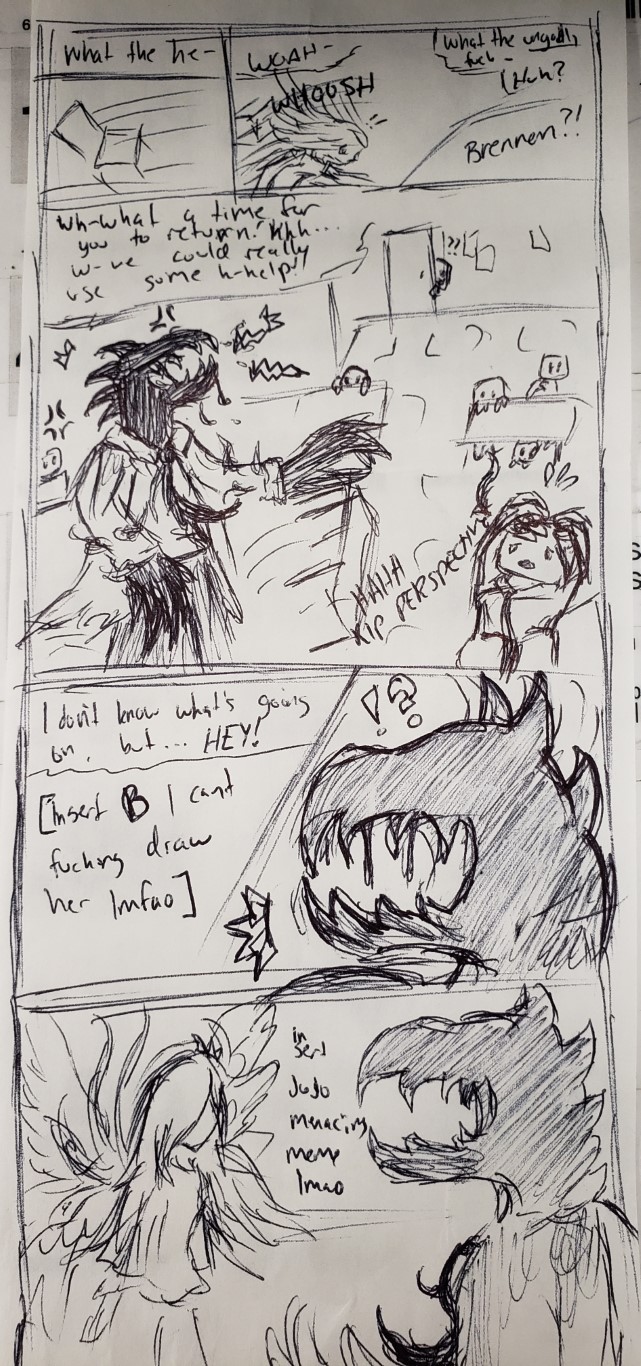 6
What the he-
WOAH-
WHOOSH
What the ungodly
fuck-
Huh?
Brennen?!
Wh-what a time for
you to return! Hhh...
w-we could really
use some h-help!!
??
HAHA
RIP PERSPECTIVE
!?
I don't know what's going
on, but... HEY!
[insert B I cant
fucking draw
her lmfao]
insert
JoJo
menacing
meme
lmao